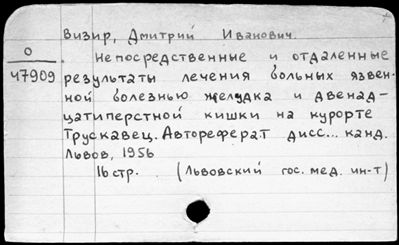 Визир, Дмитрий Иванович.
О
47909
Непосредственные и отдаленные
результаты лечения больных язвен-
ной болезнью желудка и двенад-
цатиперстной кишки на курорте
Трускавец. Автореферат дисс... канд.
Львов, 1956
16 стр. (Львовский гос. мед. ин-т)